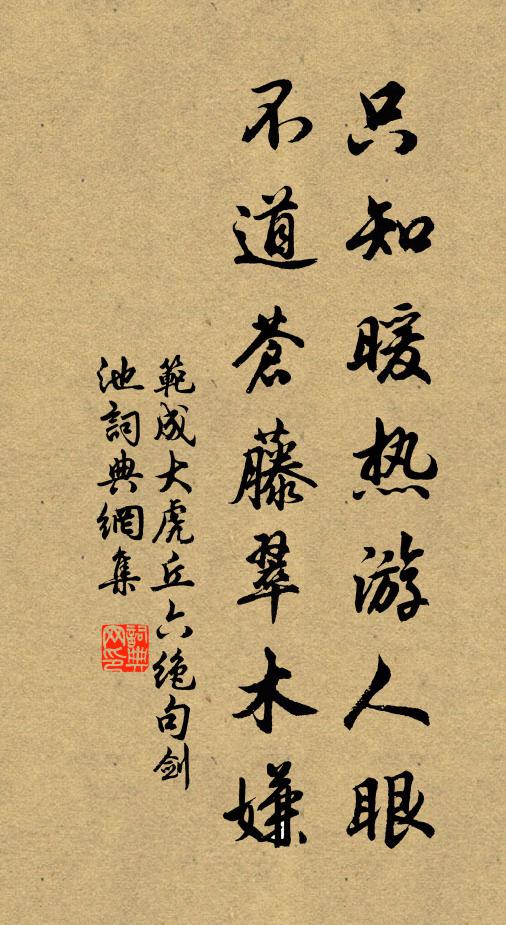 只知暖热游人眼
不道蒼藤翠木嫌
範成大虎丘六绝句剑
池詞典網集
詞典网印